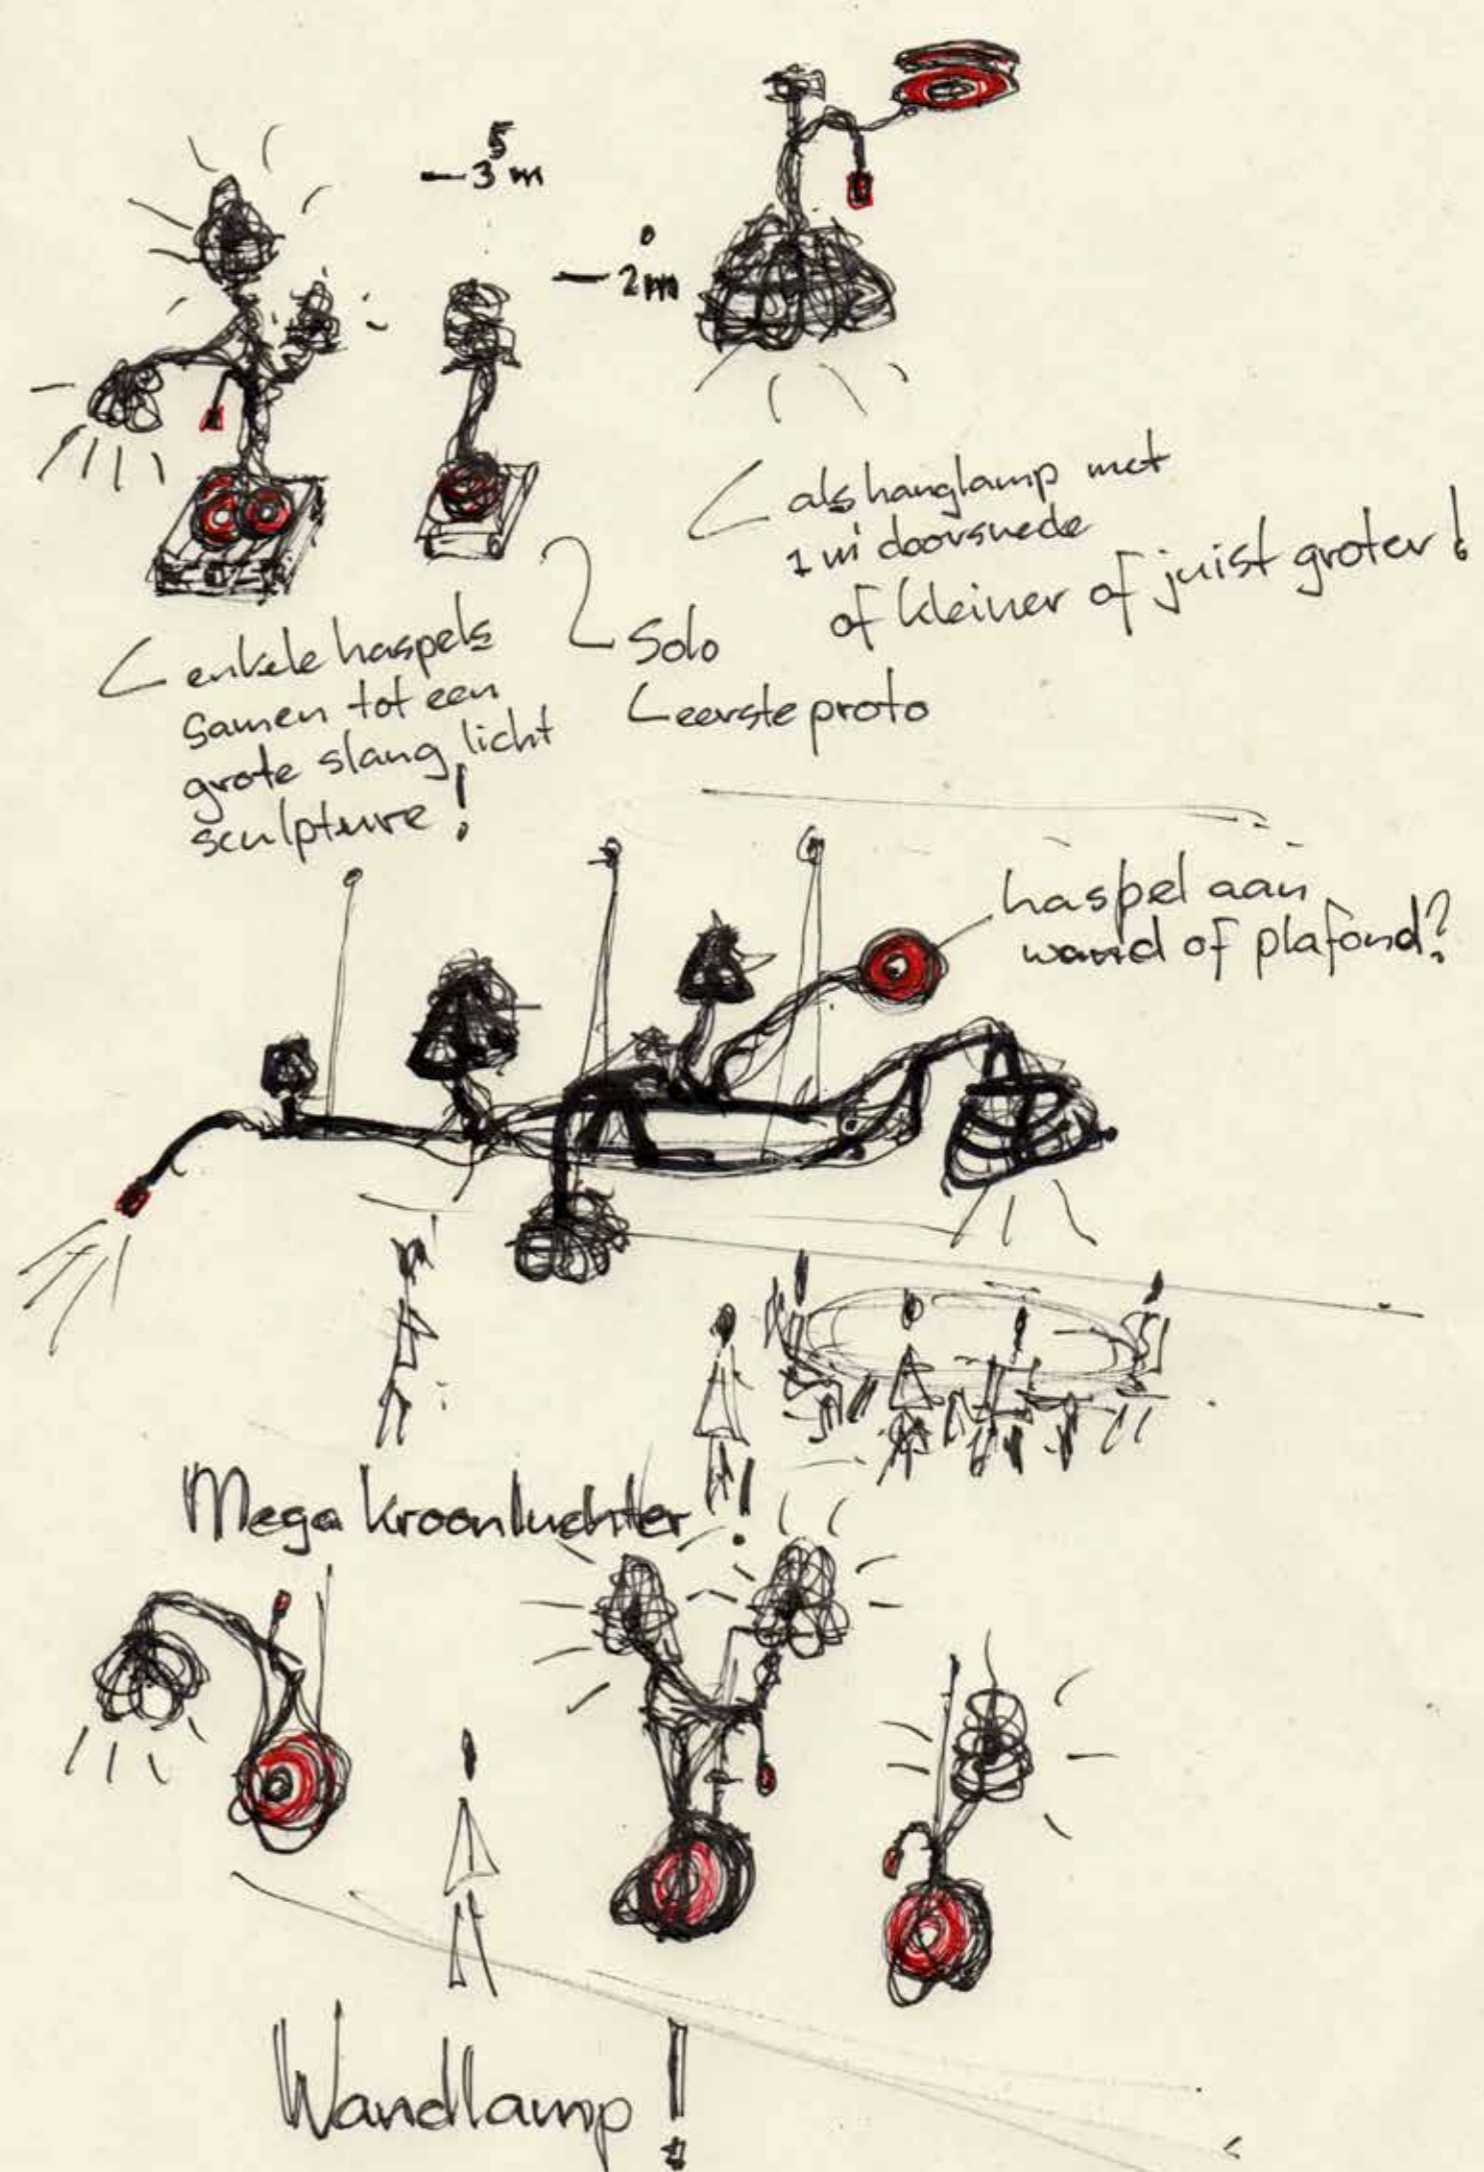 5
— 3 m
— 2 m
als hanglamp met
1 m doorsnede
of kleiner of juist groter!
enkele haspels
samen tot een
grote slang licht
sculpture!
Solo
eerste proto
haspel aan
wand of plafond?
Mega kroonluchter!
Wandlamp!